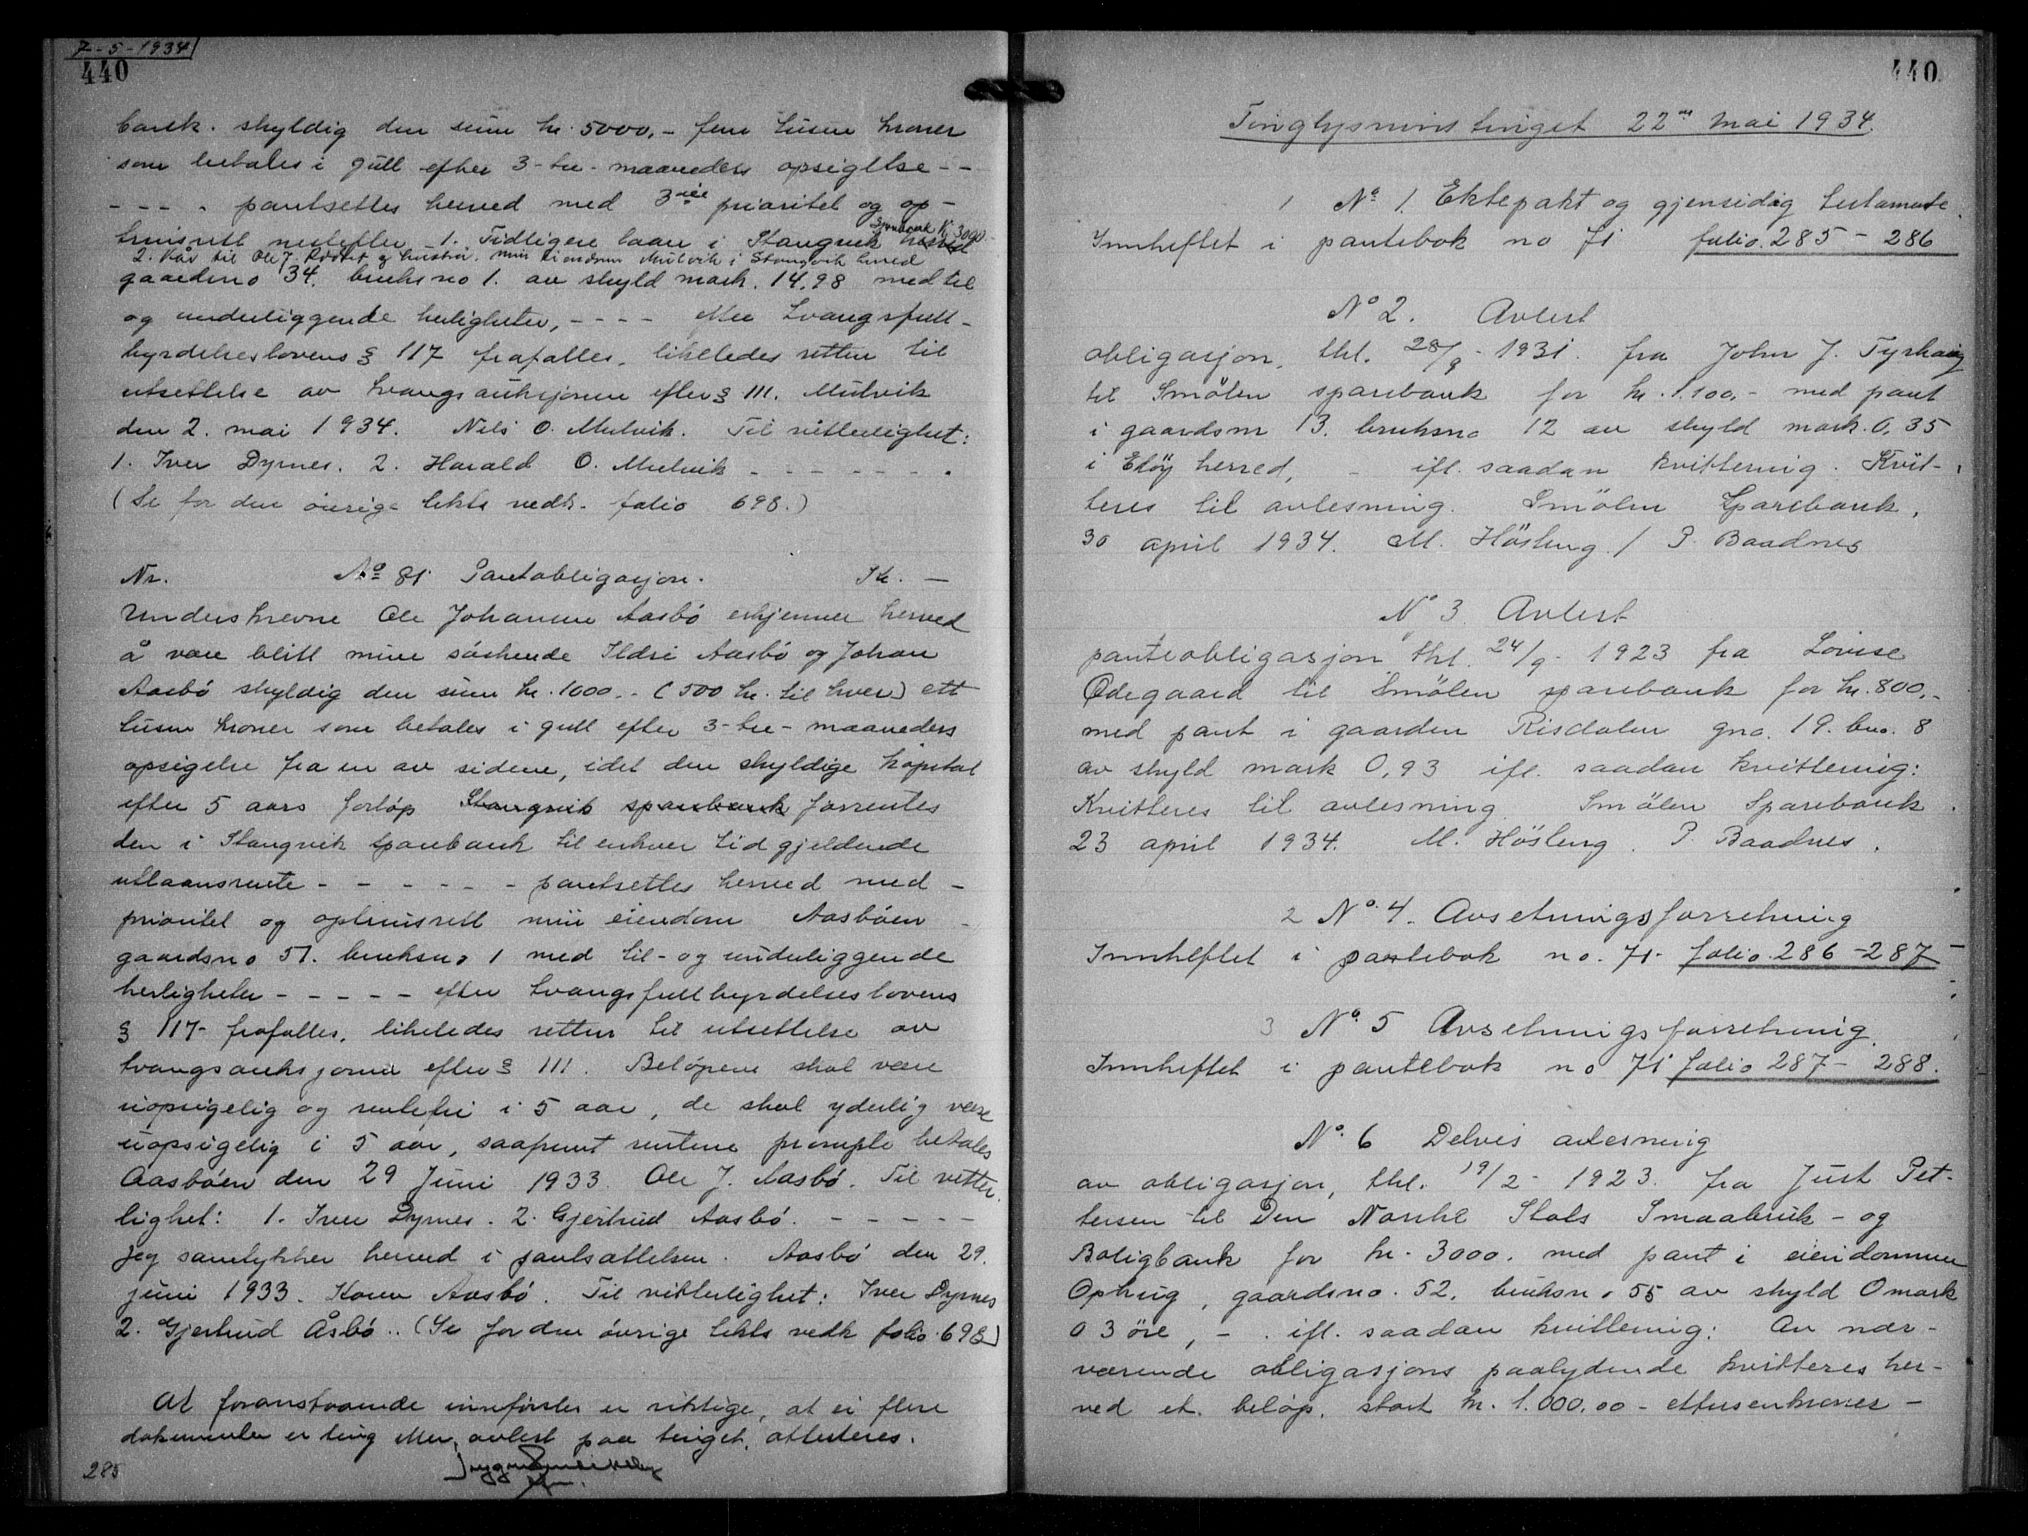 7-5-1934
440
bank. skyldig den sum kr. 5000,- fem tusen kroner
som betales i gull efter 3-tre-maaneders opsigelse--
---. pantsettes herved med 3die prioritet og op-
trinsrett nestefter 1. Tidligere laan i Stangvik Sparebank kr. 3000.
2. Kår til Ole J. og hustru. min eiendom Mulvik i Stangvik herred
gaardsno 34. bruksno 1. av skyld mark. 14,98 med til
og underliggende herligheter, ---- efter Tvangsfull-
byrdelseslovens § 117 frafalles, likeledes retten til
utsettelse av tvangsauksjonen efter § 111. Mulvik
den 2. mai 1934. Nils O. Mulvik. Til vitterlighet:
1. Iver Dyrnes. 2. Harald O. Mulvik - - - - - - .
(Se for den øvrige tekts vedk. folio 698.)
Nr. No 81 Pantobligasjon. Sk. —
Underskrevne Ole Johannes Aasbö erkjenner herved
å være blitt mine söskende Ildri Aasbö og Johan
Aasbö skyldig den sum kr. 1000.- (500 kr. til hver) ett
tusen kroner som betales i gull efter 3-tre-maaneders
opsigelse fra en av sidene, idet den skyldige kapital
efter 5 aars forløp Stangvik sparebank forrentes
den i Stangvik sparebank til enhver tid gjeldende
utlaansrente - - - - - - pantsettes herved med -
prioritet og optrinsrett min eiendom Aasböen -
gaardsno 51. bruksno 1 med til- og underliggende
herligheter - - - - - efter tvangsfullbyrdelseslovens
§ 117 frafalles, likeledes retten til utsettelse av
tvangsauksjonen efter § 111. Beløpene skal være
uopsigelig og rentefri i 5 aar, de skal yderlig være
uopsigelig i 5 aar, saafremt rentene prompte betales
Aasböen den 29 Juni 1933. Ole J. Aasbö. Til vitter-
lighet: 1. Iver Dyrnes. 2. Gjertrud Aasbö. - - - - -
Jeg samtykker herved i pantsattelsen. Aasbö den 29.
juni 1933. Karen Aasbö. Til vitterlighet: Iver Dyrnes
2. Gjertrud Åsbö.. (Se for den övrige tekts vedk folio 698)
At foranstaaende innførsler er riktige, at ei flere
dokumenter er ting eller avlest paa tinget, attesteres.
285
440
Tinglysningstinget 22de Mai 1934.
1 No 1. Ektepakt og gjensidig testamente.
Innheftet i pantebok no 71 folio 285 - 286
No 2. Avlest
obligasjon, thl. 28/9 - 1931. fra John J. Tyrhaug
til Smölen sparebank for kr. 1.100,- med pant
i gaardsnr 13. bruksno 12 av skyld mark. 0,35
i Edøy herred, - ifl. saadan kvittering. Kvit-
teres til avlesning. Smölen Sparebank,
30 april 1934. M. Hösteng / P. Baadnes
No 3 Avlest
panteobligasjon thl. 24/9 - 1923 fra Lovise
Ødegaard til Smölen sparebank for kr. 800,-
med pant i gaarden Risdalen gno. 19. bno. 8
av skyld mark 0,93 ifl. saadan kvittering:
Kvitteres til avlesning. Smölen Sparebank
23 april 1934. M. Hösteng. P. Baadnes.
2 No. 4. Avsetningsforretning
Innheftet i pantebok no. 71. folio 286 - 287
3 No. 5 Avsetningsforretning.
Innheftet i pantebok no 71 folio 287 - 288.
No. 6 Delvis avlesning
av obligasjon, thl. 19/2 - 1923. fra Just Pet-
tersen til Den Norske Stats Smaabruk- og
Boligbank for kr. 3000. med pant i eiendommen
Ophug, gaardsno. 52. bruksno 55 av skyld 0 mark
03 öre, - . ifl. saadan kvittering: Av nær-
værende obligasjons paalydende kvitteres her-
ved et. beløp, stort kr. 1.000,00 - ettusenkroner -